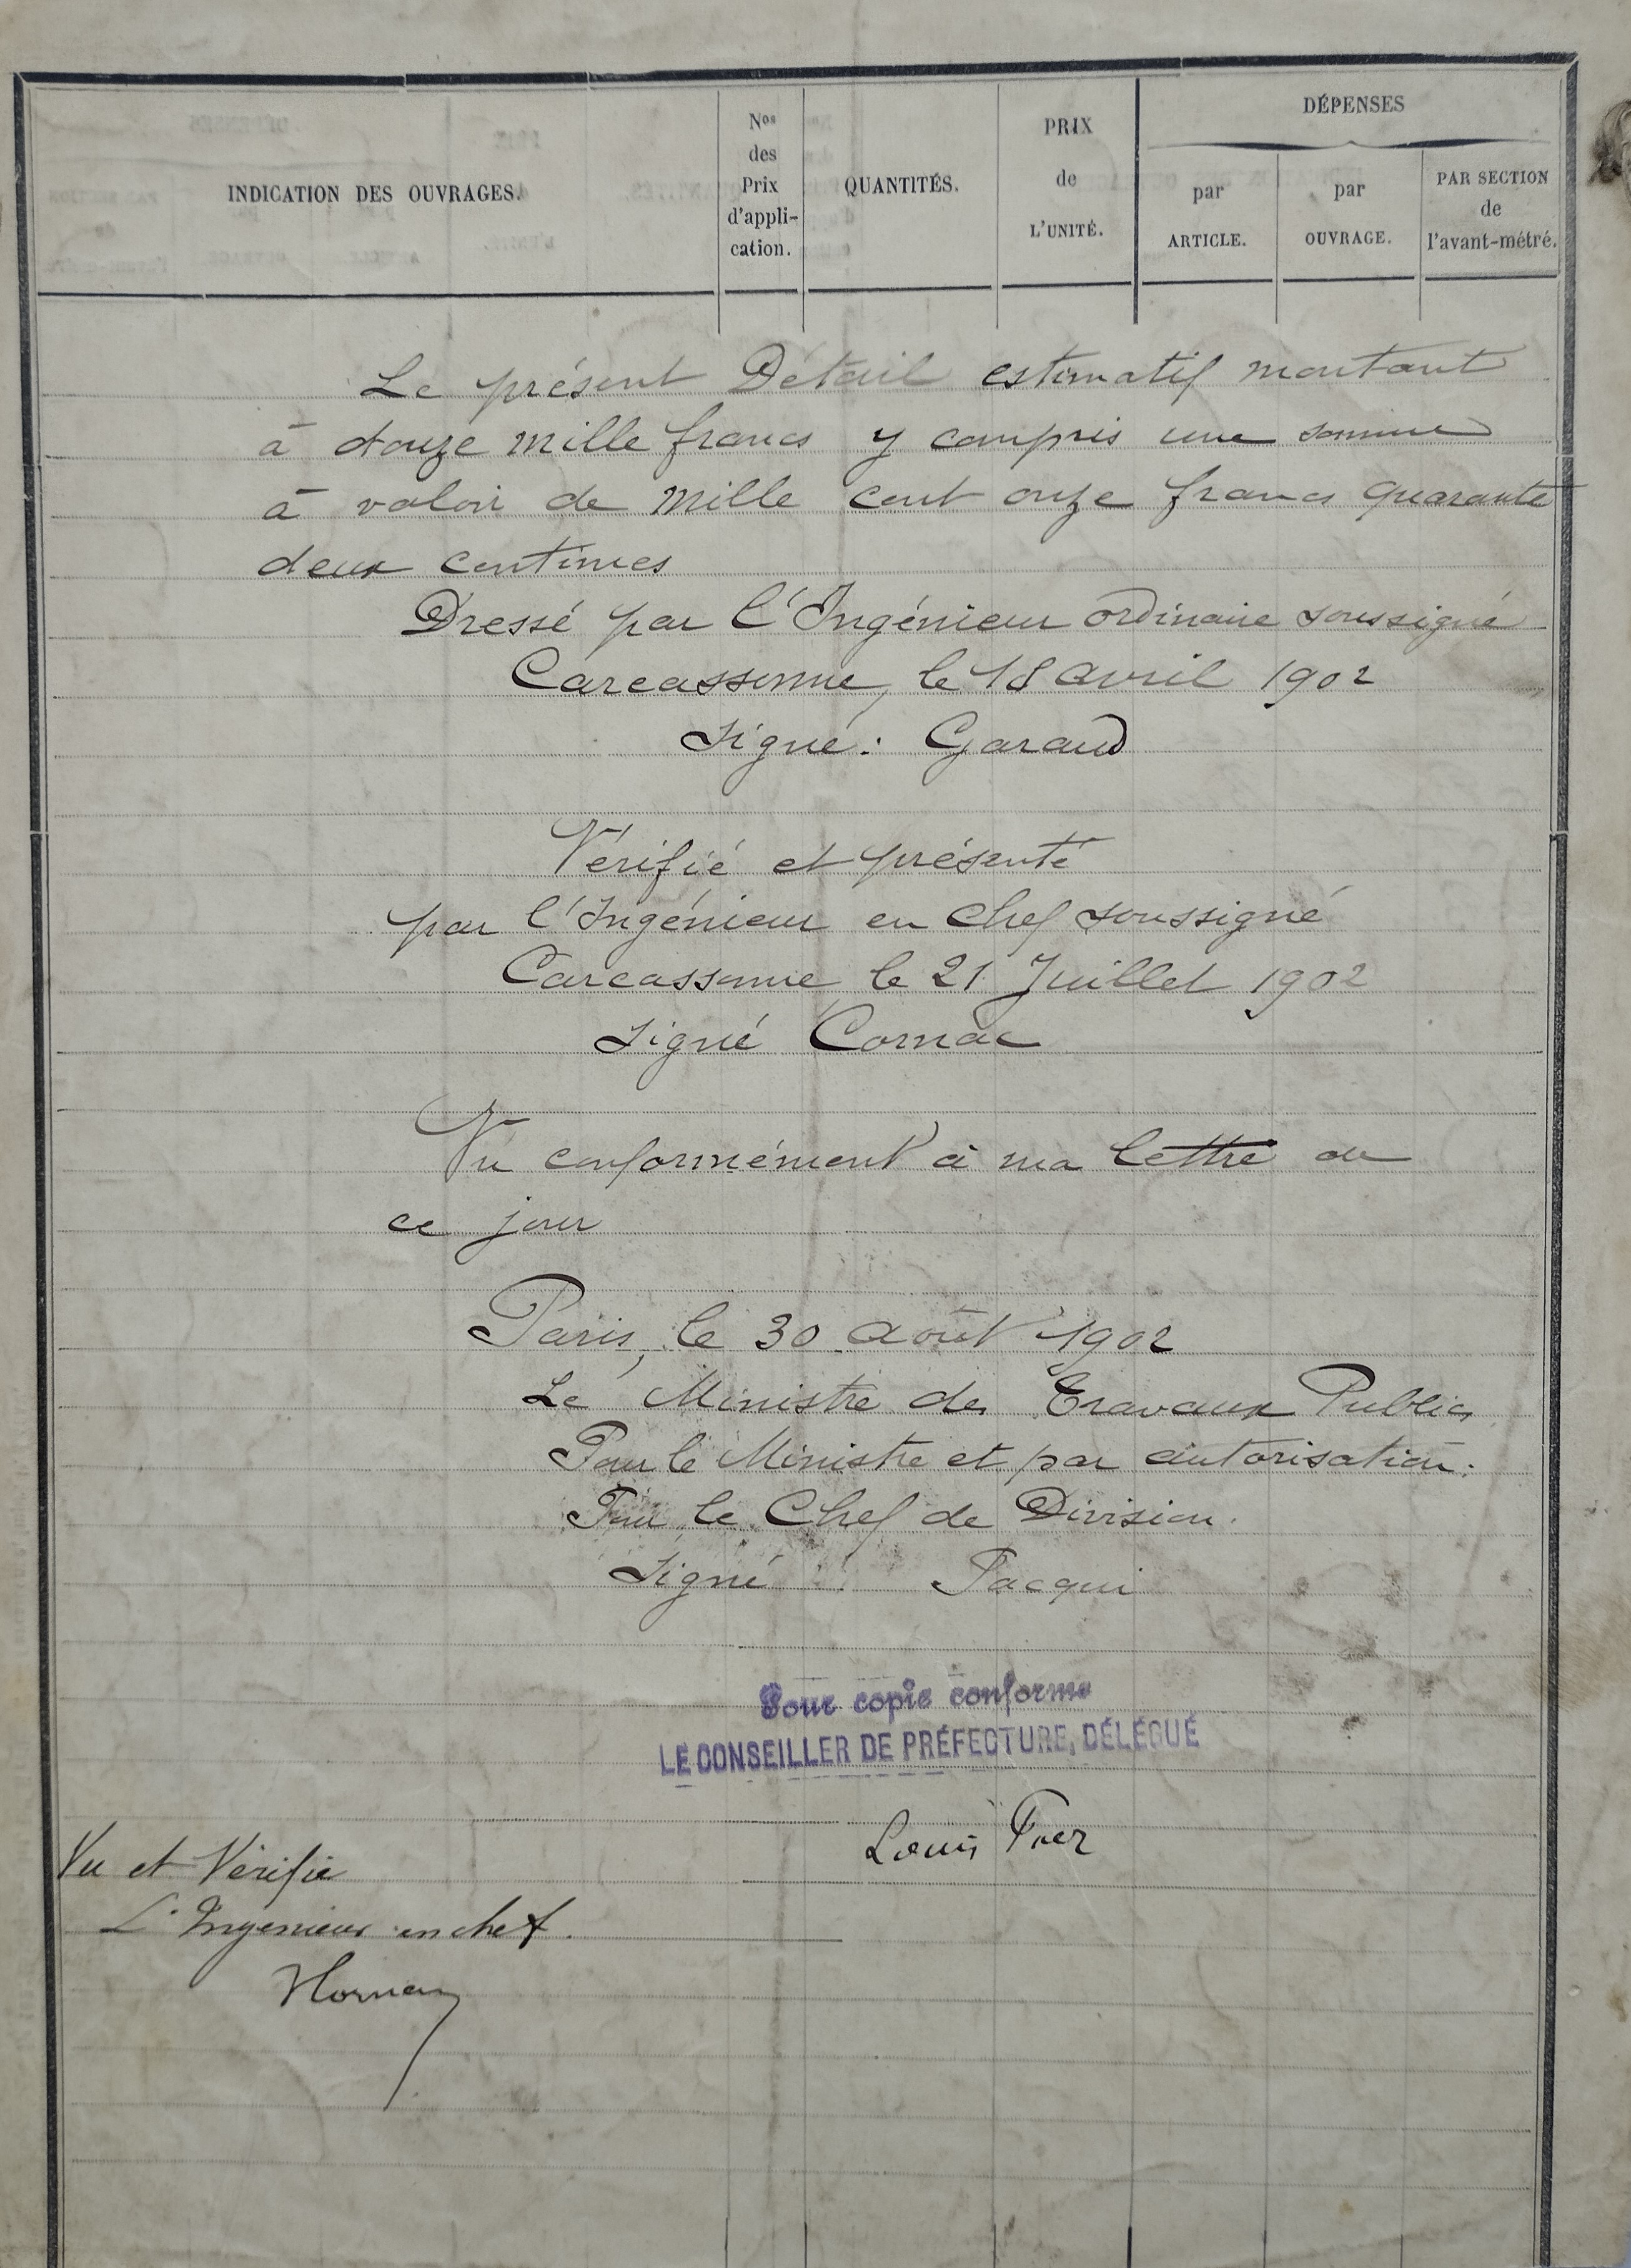 INDICATION DES OUVRAGES.
Nos
des
Prix
d'appli-
cation.
QUANTITÉS.
PRIX
de
L'UNITÉ.
DÉPENSES
par
ARTICLE.
par
OUVRAGE.
PAR SECTION
de
l'avant-métré.
Le présent Détail estimatif montant
à douze mille francs y compris une somme
à valoir de mille cent onze francs quarante
deux centimes
Dressé par l'Ingénieur ordinaire soussigné
Carcassonne, le 18 avril 1902
Signé: Garaud
Vérifié et présenté
par l'Ingénieur en Chef soussigné
Carcassonne le 21 Juillet 1902
Signé Cornac
Vu conformément à ma lettre de
ce jour
Paris, le 30 août 1902
Le Ministre des Travaux Publics
Pour le Ministre et par autorisation:
Pour le Chef de Division.
Signé Pacqui
Pour copie conforme
LE CONSEILLER DE PRÉFECTURE, DÉLÉGUÉ
Louis
Vu et Vérifié
L'Ingénieur en chef.